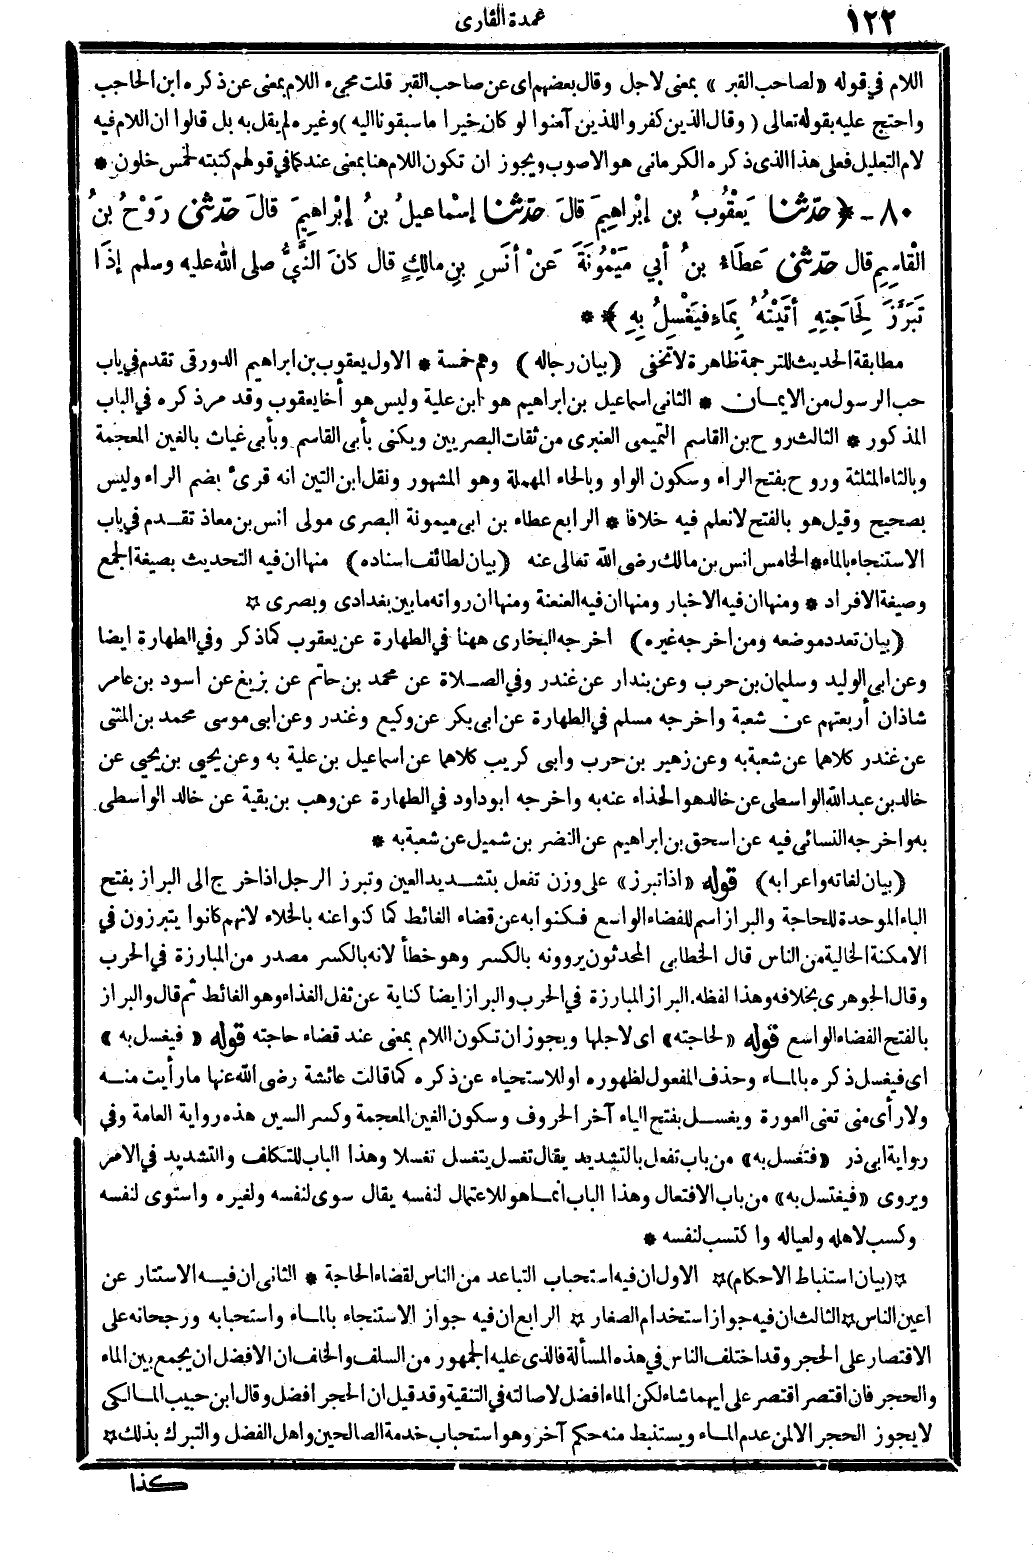 ١٢٢
عمدة القارى
اللام فى قوله «لصاحب القبر» بمعنى لاجل وقال بعضهم اى عن صاحب القبر قلت مجىء اللام بمعنى عن ذكره ابن الحاجب
واحتج عليه بقوله تعالى (وقال الذين كفروا للذين آمنوا لو كان خيرا ما سبقونا اليه) وغيره لم يقل به بل قالوا ان اللام فيه
لام التعليل فعلى هذا الذى ذكره الكرمانى هو الاصوب ويجوز ان تكون اللام هنا بمعنى عند كما فى قولهم كتبته لخمس خلون *
٨٠ - ﴿ حدّثنا يَعْقُوبُ بن إبْرَاهِيمَ قالَ حدّثنا إسْماعيلُ بنُ إبْرَاهِيمَ قالَ حدّثنى رَوْحُ بنُ
الْقاسِمِ قال حدّثنى عَطَاءُ بنُ أبي مَيْمُونَةَ عَنْ أنَسِ بنِ مالِكٍ قال كانَ النَّبيُّ صلى الله عليه وسلم إذَا
تَبَرَّزَ لِحَاجَتِهِ أتَيْتُهُ بِمَاءٍ فيَغْسِلُ بِهِ ﴾ * *
مطابقة الحديث للترجمة ظاهرة لا تخفى (بيان رجاله) وهم خمسة * الاول يعقوب بن ابراهيم الدورقى تقدم فى باب
حب الرسول من الايمان * الثانى اسماعيل بن ابراهيم هو ابن علية وليس هو أخا يعقوب وقد مر ذكره فى الباب
المذكور * الثالث روح بن القاسم التميمى العنبرى من ثقات البصريين ويكنى بأبى القاسم وبأبى غياث بالغين المعجمة
وبالثاء المثلثة وروح بفتح الراء وسكون الواو وبالحاء المهملة وهو المشهور ونقل ابن التين انه قرىء بضم الراء وليس
بصحيح وقيل هو بالفتح لا نعلم فيه خلافا * الرابع عطاء بن ابى ميمونة البصرى مولى انس بن معاذ تقدم فى باب
الاستنجاء بالماء * الخامس انس بن مالك رضى الله تعالى عنه (بيان لطائف اسناده) منها ان فيه التحديث بصيغة الجمع
وصيغة الافراد * ومنها ان فيه الاخبار ومنها ان فيه العنعنة ومنها ان رواته ما بين بغدادى وبصرى ☆
(بيان تعدد موضعه ومن اخرجه غيره) اخرجه البخارى ههنا فى الطهارة عن يعقوب كما ذكر وفى الطهارة ايضا
وعن ابى الوليد وسليمان بن حرب وعن بندار عن غندر وفى الصلاة عن محمد بن حاتم عن بزيغ عن اسود بن عامر
شاذان أربعتهم عن شعبة واخرجه مسلم فى الطهارة عن ابى بكر عن وكيع وغندر وعن ابى موسى محمد بن المثنى
عن غندر كلاهما عن شعبة به وعن زهير بن حرب وابى كريب كلاهما عن اسماعيل بن علية به وعن يحيى بن يحيى عن
خالد بن عبد الله الواسطى عن خالد هو الحذاء عنه به واخرجه ابو داود فى الطهارة عن وهب بن بقية عن خالد الواسطى
به واخرجه النسائى فيه عن اسحق بن ابراهيم عن النضر بن شميل عن شعبة به *
(بيان لغاته واعرابه) قوله «اذا تبرز» على وزن تفعل بتشديد العين وتبرز الرجل اذا خرج الى البراز بفتح
الباء الموحدة للحاجة والبراز اسم للفضاء الواسع فكنوا به عن قضاء الغائط كما كنوا عنه بالخلاء لانهم كانوا يتبرزون فى
الامكنة الخالية من الناس قال الخطابى المحدثون يروونه بالكسر وهو خطأ لانه بالكسر مصدر من المبارزة فى الحرب
وقال الجوهرى بخلافه وهذا لفظه. البراز المبارزة فى الحرب والبراز ايضا كناية عن ثفل الغذاء وهو الغائط ثم قال والبراز
بالفتح الفضاء الواسع قوله «لحاجته» اى لاجلها ويجوز ان تكون اللام بمعنى عند قضاء حاجته قوله «فيغسل به»
اى فيغسل ذكره بالماء وحذف المفعول لظهوره او للاستحياء عن ذكره كما قالت عائشة رضى الله عنها ما رأيت منه
ولا رأى منى تعنى العورة ويغسل بفتح الياء آخر الحروف وسكون الغين المعجمة وكسر السين هذه رواية العامة وفى
رواية ابى ذر «فتغسل به» من باب تفعل بالتشديد يقال تغسل يتغسل تغسلا وهذا الباب للتكلف والتشديد فى الامر
ويروى «فيغتسل به» من باب الافتعال وهذا الباب انما هو للاعتمال لنفسه يقال سوى لنفسه ولغيره واستوى لنفسه
وكسب لاهله ولعياله واكتسب لنفسه *
☆(بيان استنباط الاحكام)☆ الاول ان فيه استحباب التباعد من الناس لقضاء الحاجة * الثانى ان فيه الاستتار عن
اعين الناس ☆ الثالث ان فيه جواز استخدام الصغار ☆ الرابع ان فيه جواز الاستنجاء بالماء واستحبابه ورجحانه على
الاقتصار على الحجر وقد اختلف الناس فى هذه المسألة فالذى عليه الجمهور من السلف والخلف ان الافضل ان يجمع بين الماء
والحجر فان اقتصر اقتصر على ايهما شاء لكن الماء افضل لاصالته فى التنقية وقد قيل ان الحجر افضل وقال ابن حبيب المالكى
لا يجوز الحجر الا لمن عدم الماء ويستنبط منه حكم آخر وهو استحباب خدمة الصالحين واهل الفضل والتبرك بذلك ☆
كذا